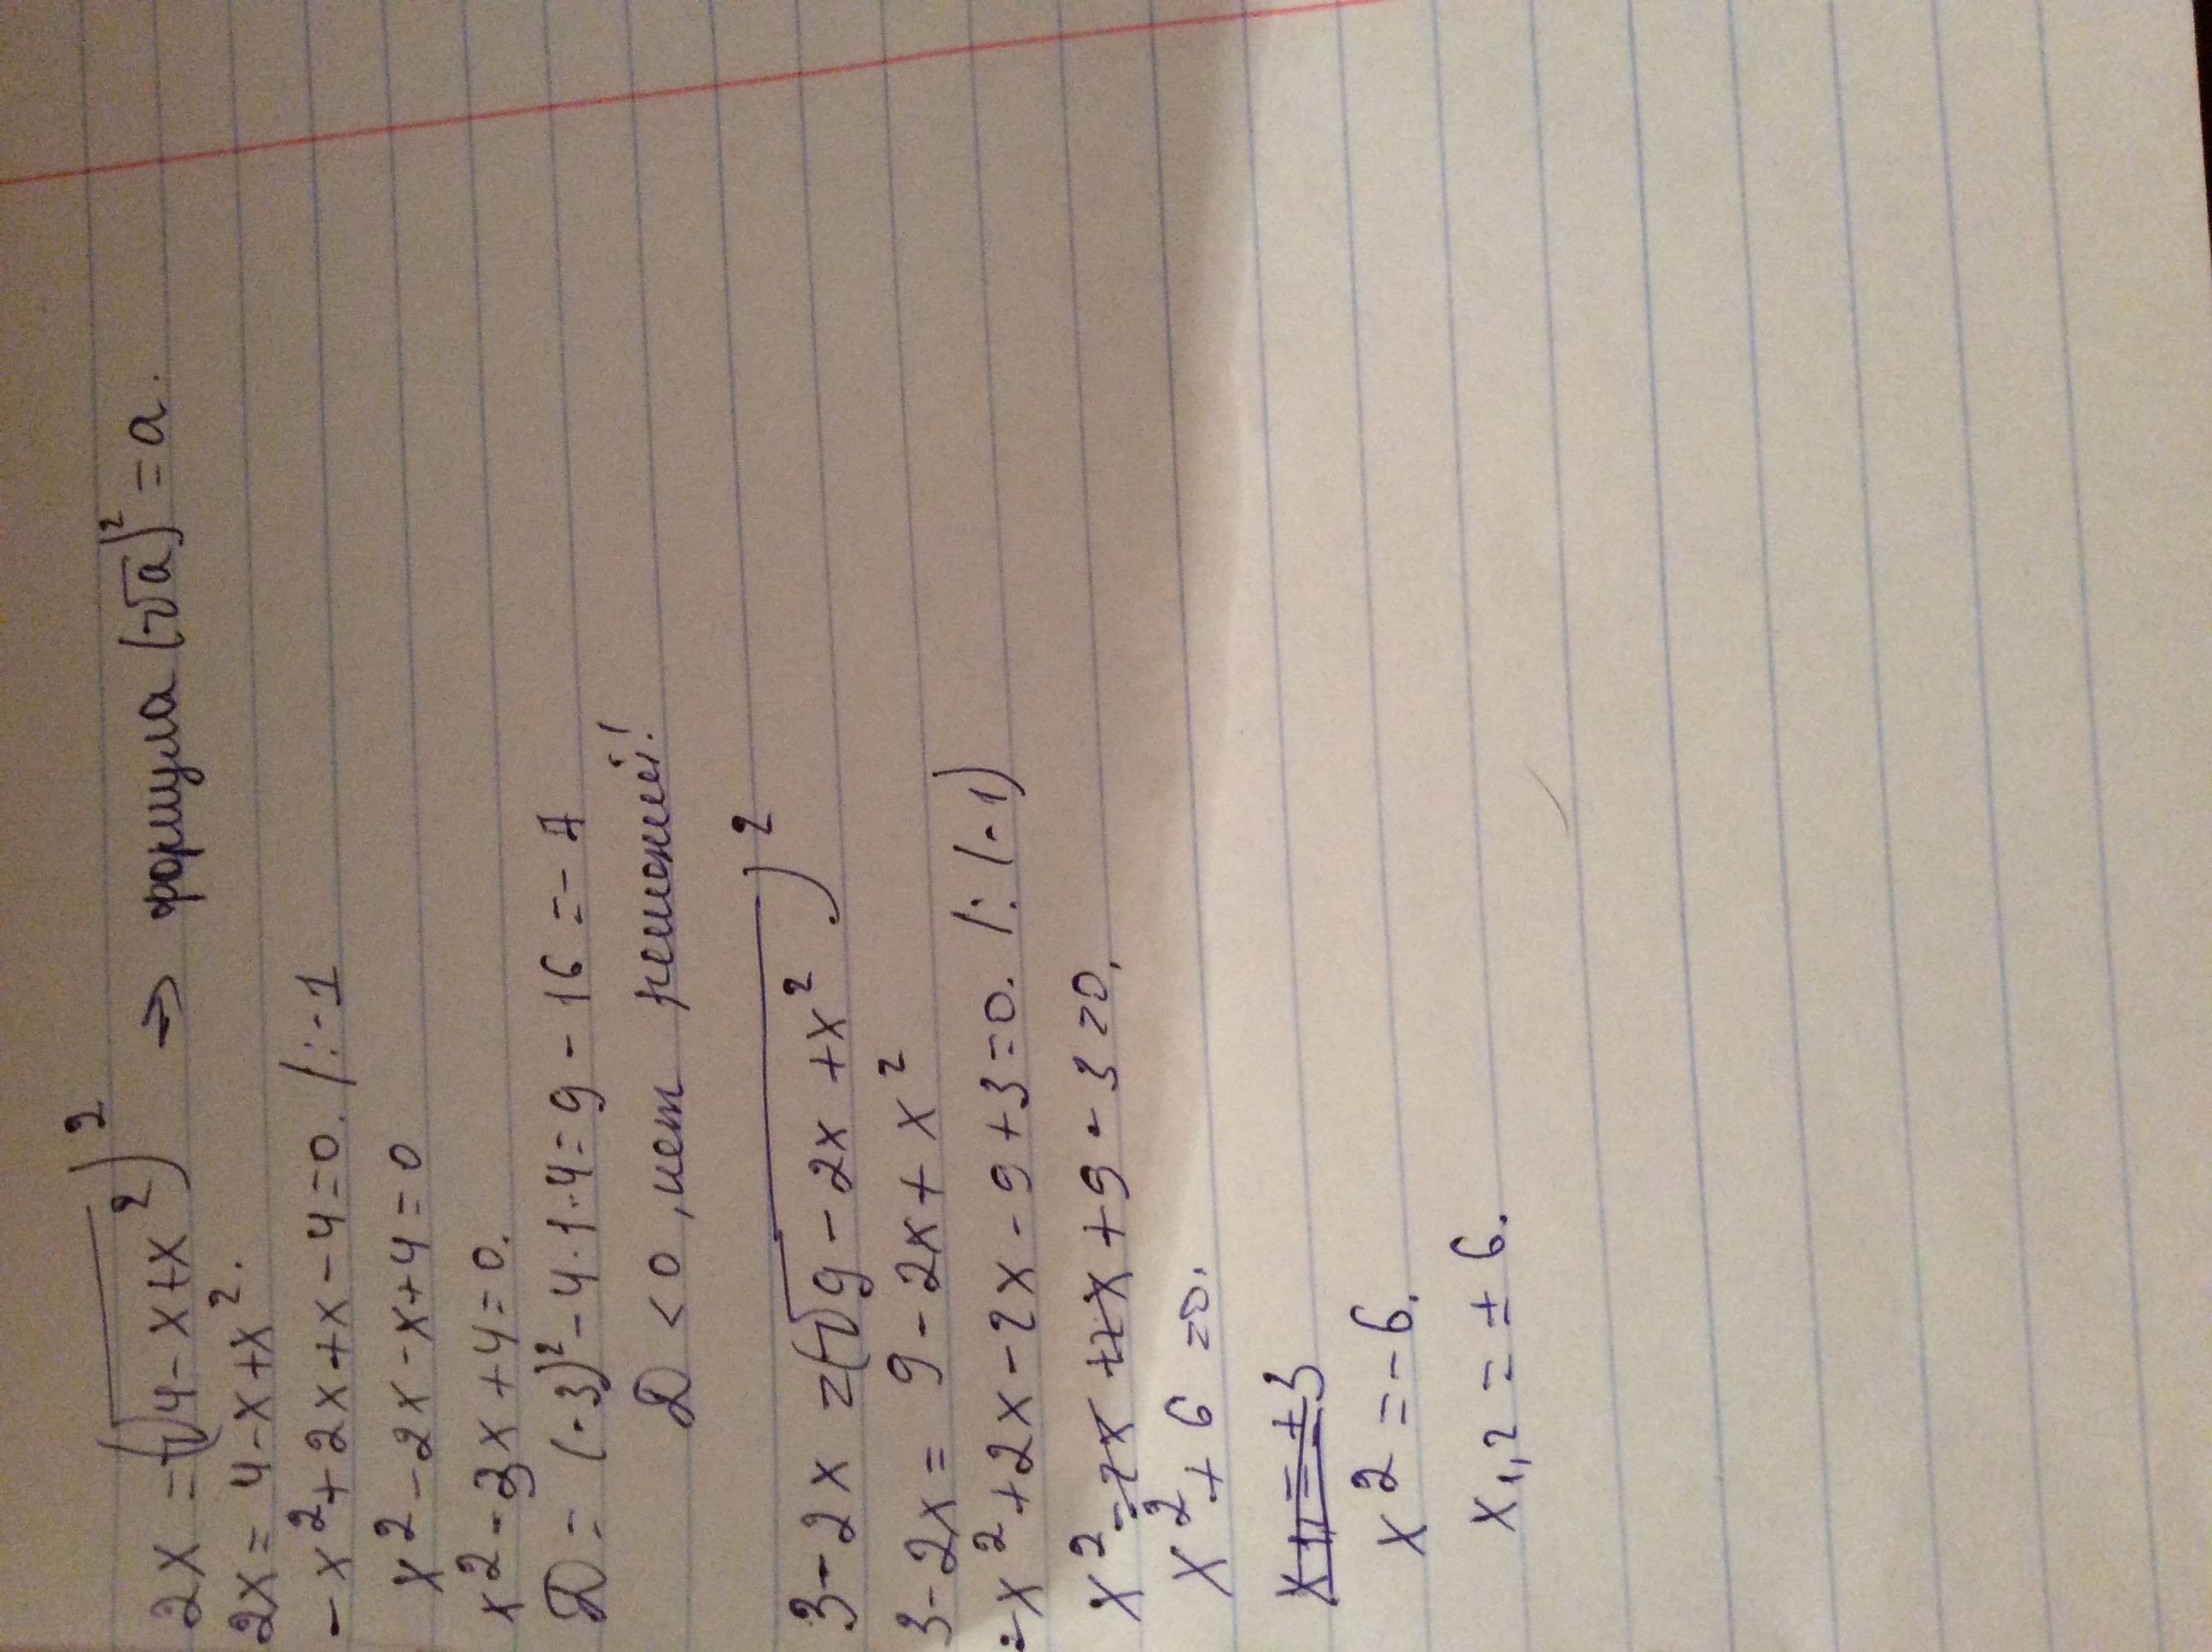 2x = (√4-x+x²)² → формула (√a)² = a.
2x = 4-x+x².
-x²+2x+x-4=0. /:-1
x²-2x-x+4=0
x²-3x+4=0.
D = (-3)²-4·1·4=9-16=-7
D<0, нет решений!
3-2x=(√9-2x+x²)²
3-2x= 9-2x+x²
-x²+2x-2x-9+3=0. /:(-1)
x²-2x+2x+9-3=0.
x²+6=0.
x²=-6.
x1,2=±6.